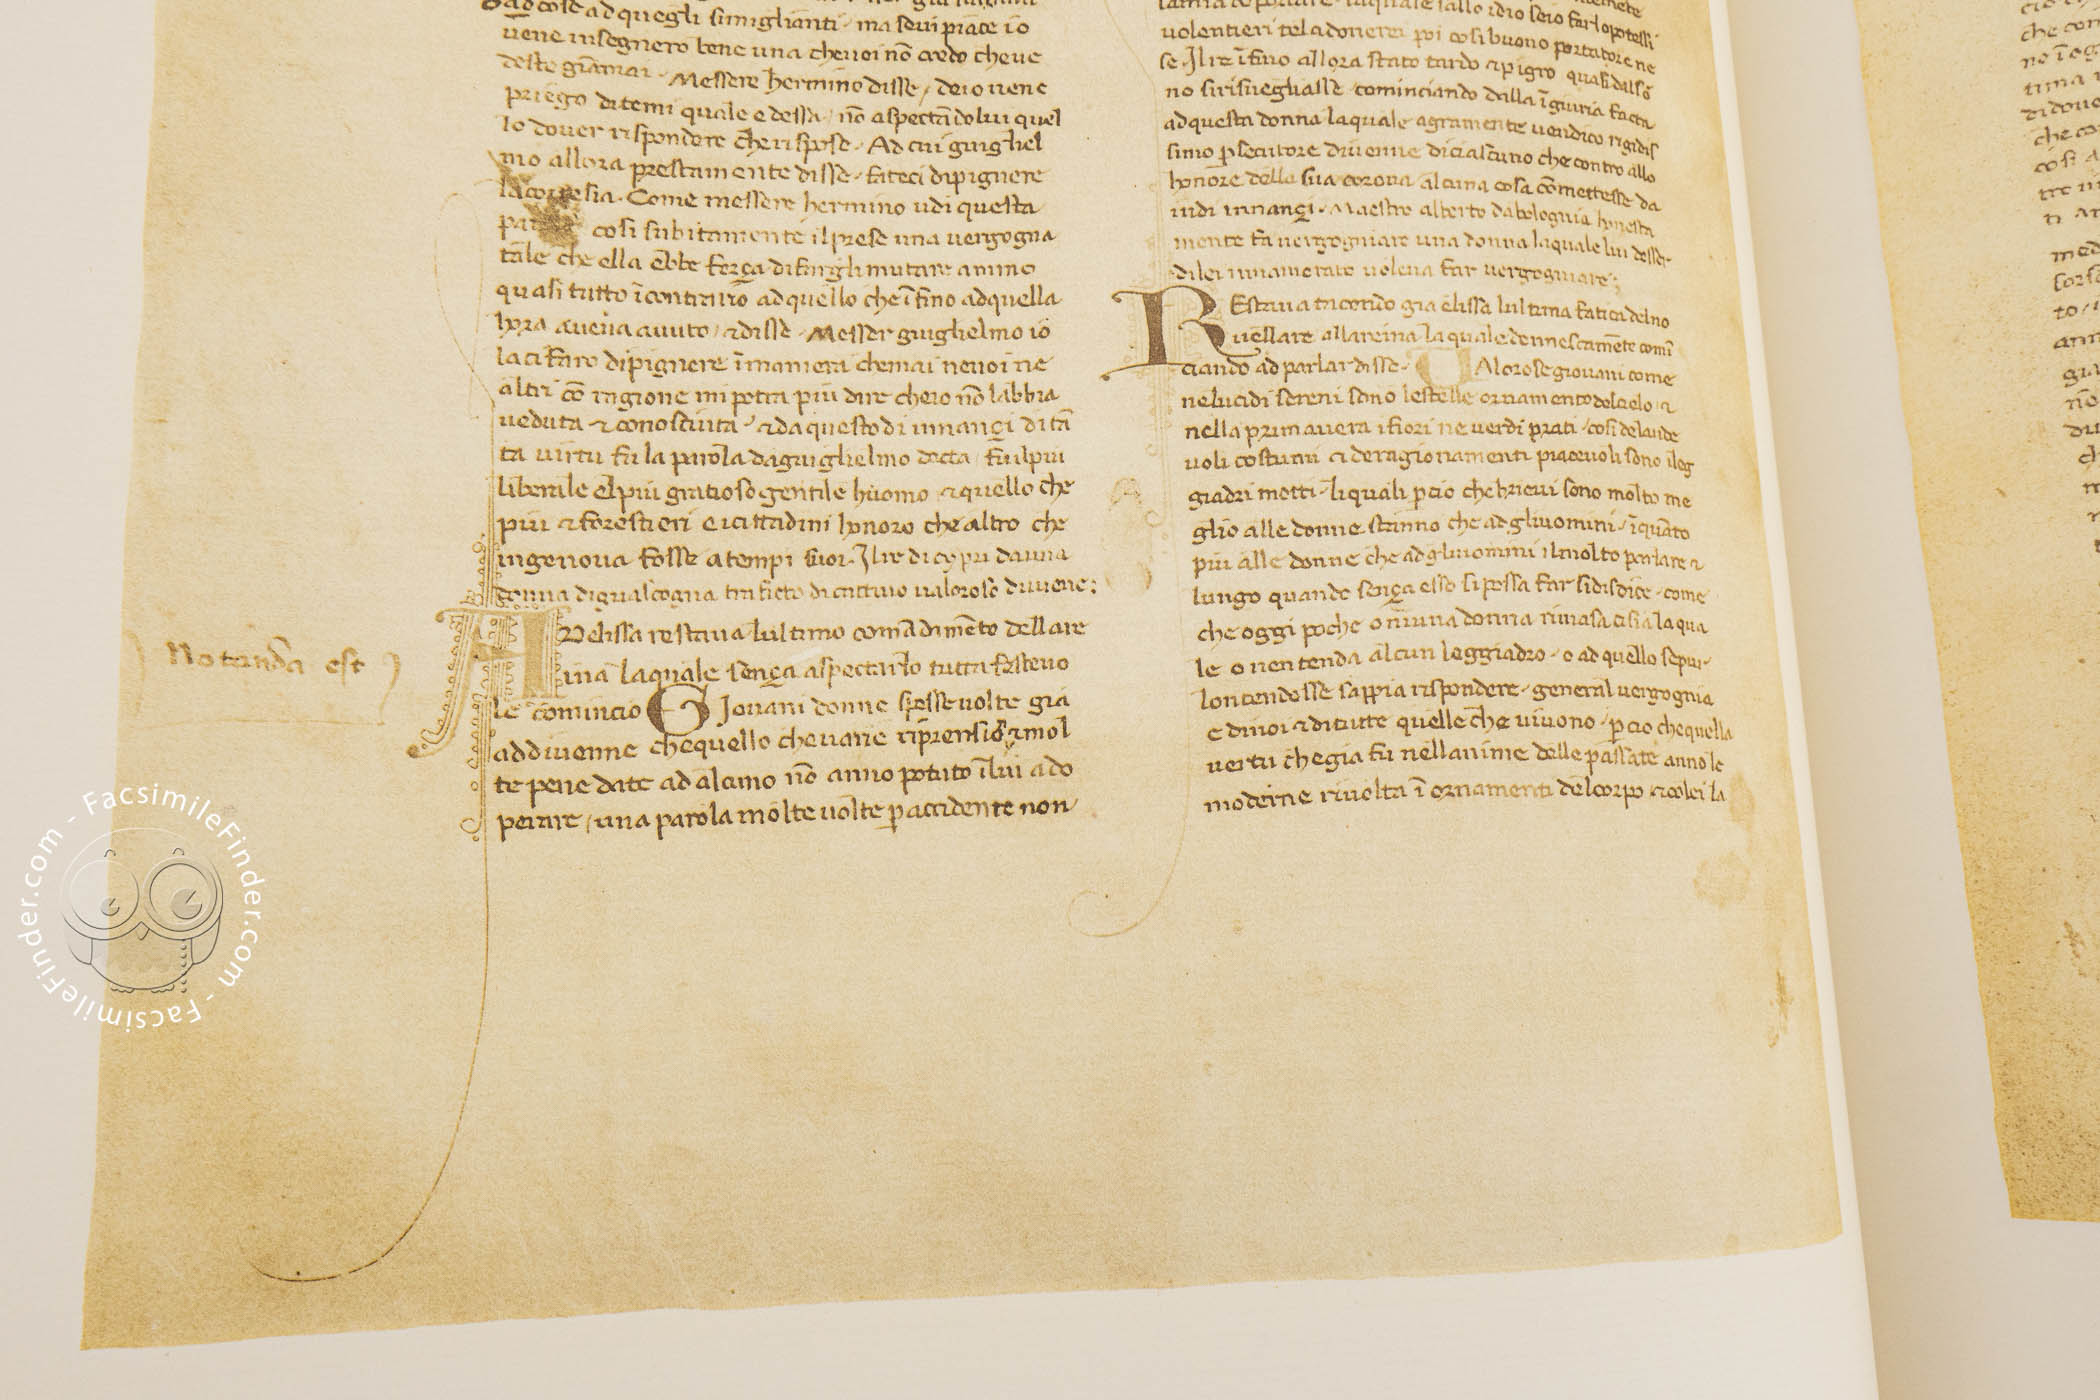 ad cose ad quegli simiglianti · ma se vi piace io
vene insegnero bene una che voi nō credo che ve
deste giamai · Messere hermino disse / deio vene
priego ditemi quale e dessa / nō aspectādo lui quel
lo dover rispondere che rispose · Ad cui guighiel
mo allora prestamente disse · fateci dipignere
la cortesia · Come messere hermino udi questa
cosi subitamente il prese una vergogna
tale che ella ebbe força di fargli mutare animo
quasi tutto ī contrario ad quello che īfino ad quella
hora aveva avuto / & disse · Messer guighielmo io
la ci faro dipignere ī maniera che mai ne voi ne
altri cō ragione mi potra piu dire che io nō labbia
veduta & conosciuta · & da questo di innançi di tā
ta virtu fu la parola da guighielmo decta / fu il piu
liberale el piu gratioso gentile huomo & quello che
piu & forestieri e i cittadini honoro che altro che
in genova fosse a tempi suoi · Il re di cypri da una
donna di guascogna trafitto di cattivo valoroso divene :
AD elissa restava lultimo comādimēto della re
ina laquale sença aspectarlo tutta festevo
le comincio Giovani donne spesse volte gia
addivenne che quello che varie riprensiō & mol
te pene date ad alcuno nō anno potuto ī lui ado
perare / una parola molte volte p accidente non
Notanda est
volentieri tel a donerei poi cosi buono portatore ne
se · Il re īfino allora stato tardo & pigro quasi dal sō
no si risvegliasse · cominciando dalla īgiuria facta
ad questa donna laquale agramente vendico rigidis
simo p secutore divenne di ciascuno che contro allo
honore della sua corona alcuna cosa cōmettesse da
indi innançi · Maestro alberto da bologna honesta
mente fa vergogniare una donna laquale lui desser
di lei innamorato voleva far vergogniare :
REstava tacendo gia elissa lultima fatica del no
vellare alla reina laquale donnescamēte comī
ciando ad parlar disse · Valorose giovani come
ne lucidi sereni sono le stelle ornamento del cielo &
nella primavera i fiori ne verdi prati · cosi de laude
voli costumi & de ragionamenti piacevoli sono i leg
giadri motti · li quali p cio che brievi sono molto me
glio alle donne stanno che ad gli uomini · ī quāto
piu alle donne che ad gli uomini il molto parlare &
lungo quando sença esso si possa far si disdice · come
che oggi poche o niuna donna rimasa ci sia la qua
le o nentenda alcun leggiadro · o ad quello se pur
lontendesse sappia rispondere · general vergognia
e di noi & di tutte quelle che vivono · p cio che quella
vertu che gia fu nellanime delle passate anno le
moderne rivolta ī ornamenti del corpo & colei la
FacsimileFinder.com - FacsimileFinder.com - FacsimileFinder.com